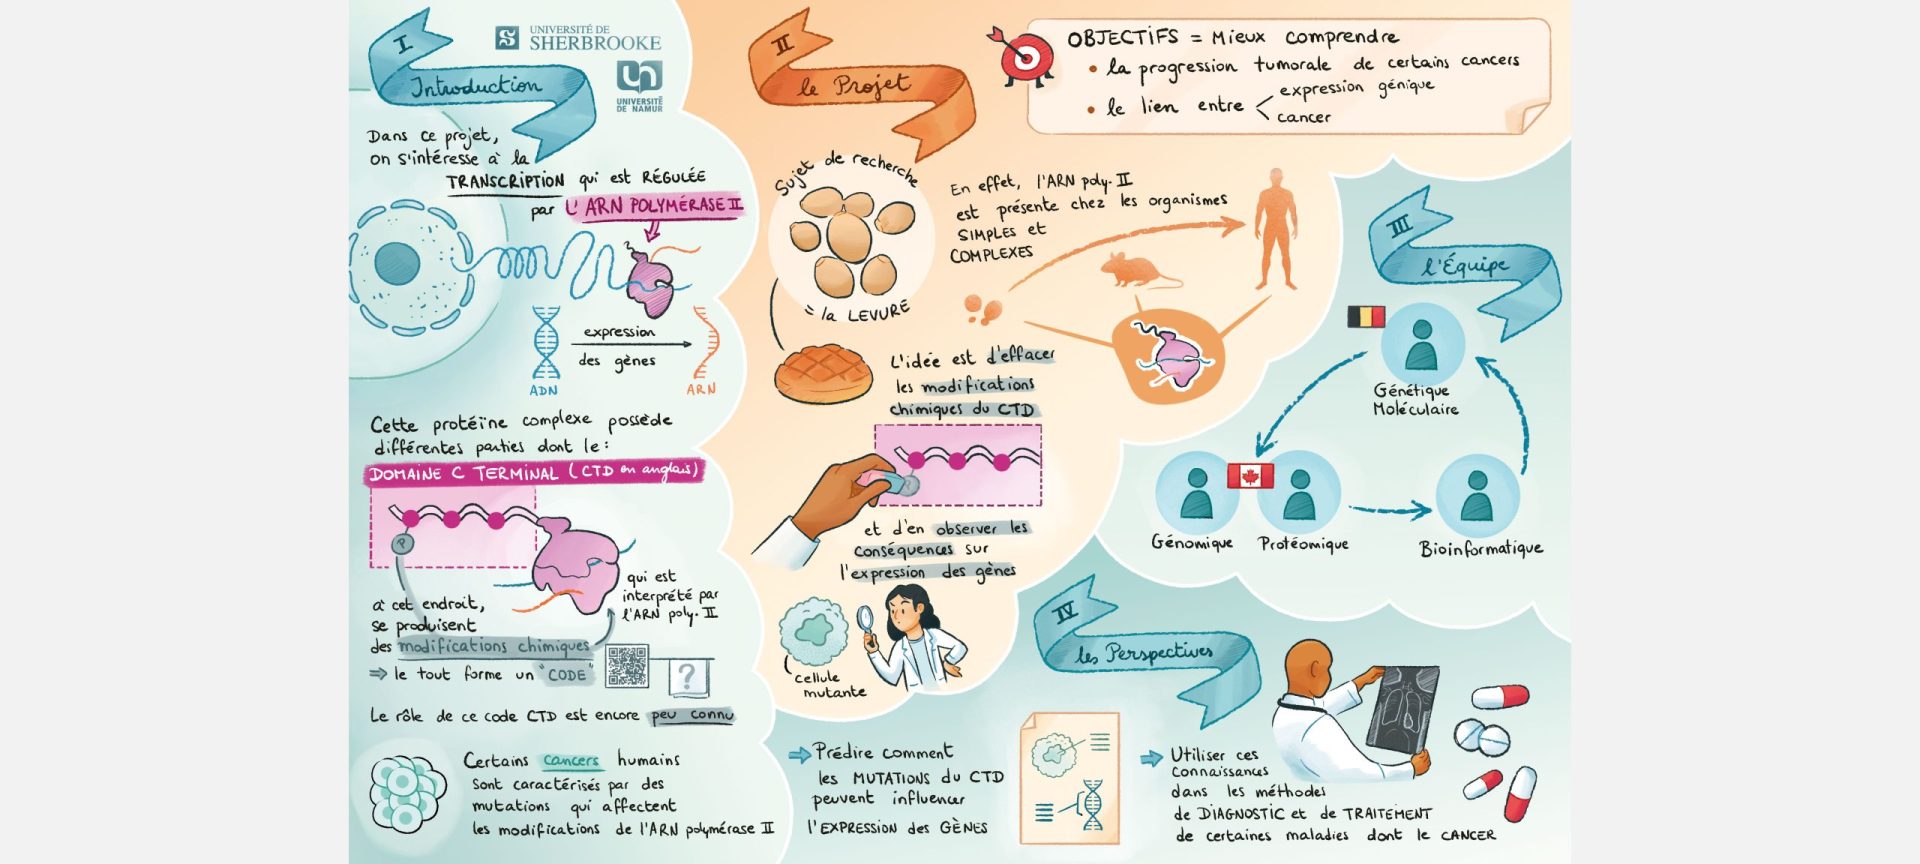 I
Introduction
UNIVERSITÉ DE
SHERBROOKE
UNIVERSITÉ
DE NAMUR
Dans ce projet,
on s'intéresse à la
TRANSCRIPTION qui est RÉGULÉE
par L'ARN POLYMÉRASE II
expression
des gènes
ADN
ARN
Cette protéïne complexe possède
différentes parties dont le :
DOMAINE C TERMINAL (CTD en anglais)
P
qui est
interprété par
l'ARN poly. II
à cet endroit,
se produisent
des modifications chimiques
⇒ le tout forme un "CODE"
?
Le rôle de ce code CTD est encore peu connu
Certains cancers humains
sont caractérisés par des
mutations qui affectent
les modifications de l'ARN polymérase II
II
le Projet
OBJECTIFS = Mieux comprendre
• la progression tumorale de certains cancers
• le lien entre < expression génique
cancer
Sujet de recherche
= la LEVURE
En effet, l'ARN poly. II
est présente chez les organismes
SIMPLES et
COMPLEXES
L'idée est d'effacer
les modifications
chimiques du CTD
P
et d'en observer les
conséquences sur
l'expression des gènes
cellule
mutante
III
l'Équipe
Génétique
Moléculaire
Génomique
Protéomique
Bioinformatique
IV
les Perspectives
⇒ Prédire comment
les MUTATIONS du CTD
peuvent influencer
l'EXPRESSION des GÈNES
⇒ Utiliser ces
connaissances
dans les méthodes
de DIAGNOSTIC et de TRAITEMENT
de certaines maladies dont le CANCER